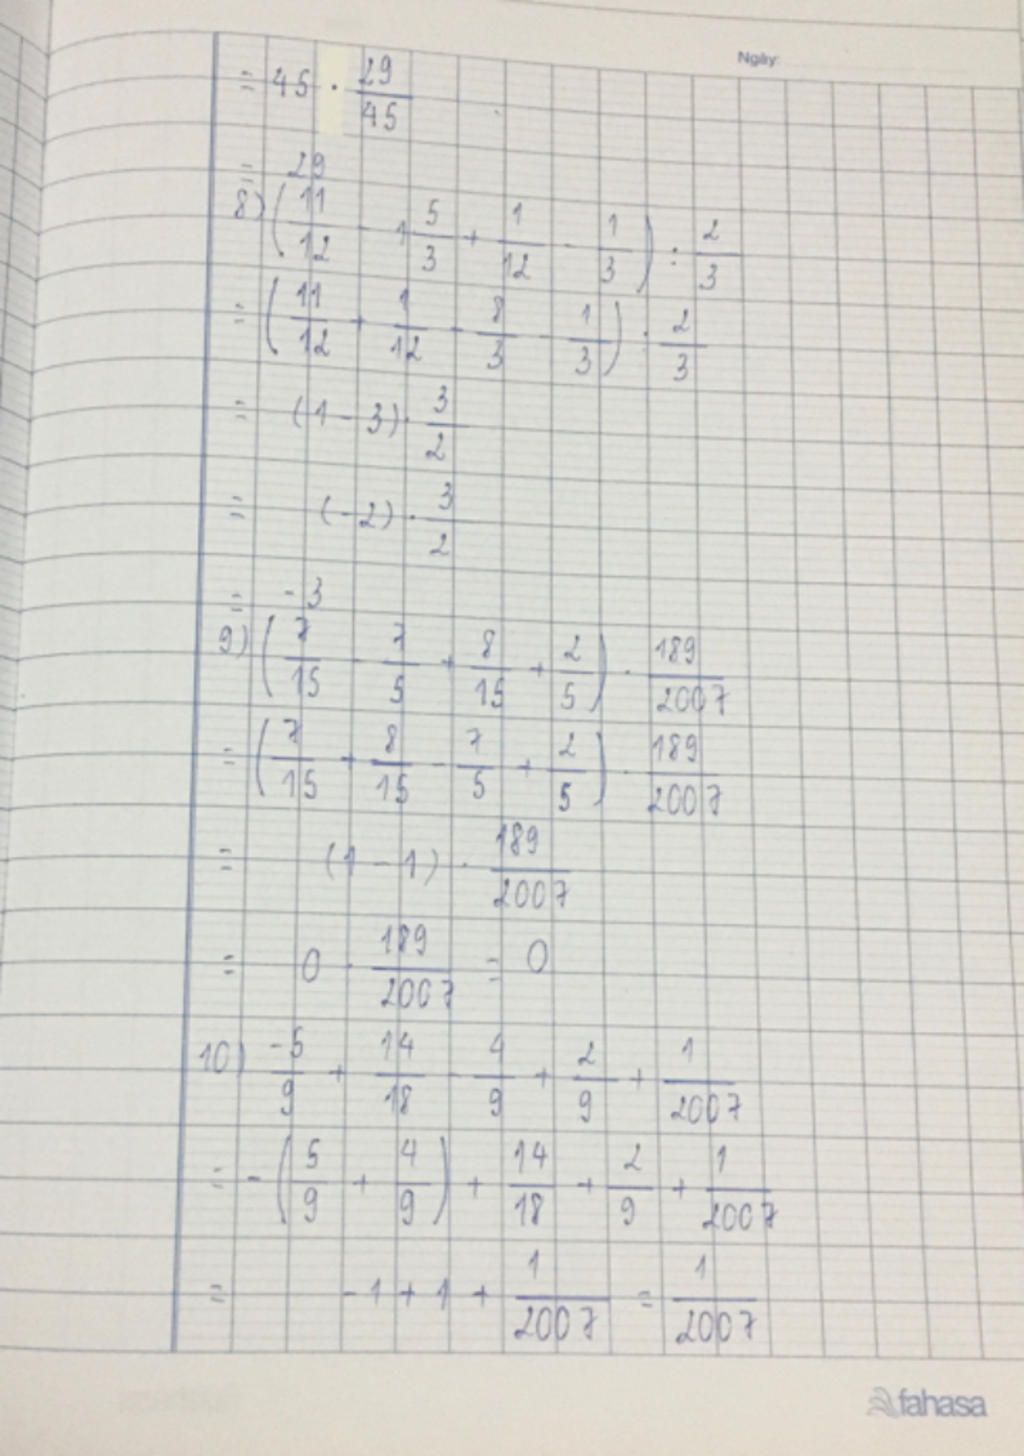 Ngày:
= 45 · 29/45
= 29
8) (11/12 - 1 5/3 + 1/12 - 1/3) : 2/3
= (11/12 + 1/12 - 8/3 - 1/3) : 2/3
= (1 - 3) · 3/2
= (-2) · 3/2
= -3
9) (7/15 - 7/5 + 8/15 + 2/5) · 189/2007
= (7/15 + 8/15 - 7/5 + 2/5) · 189/2007
= (1 - 1) · 189/2007
= 0 · 189/2007 = 0
10) -5/9 + 14/18 - 4/9 + 2/9 + 1/2007
= -(5/9 + 4/9) + 14/18 + 2/9 + 1/2007
= -1 + 1 + 1/2007 = 1/2007
fahasa